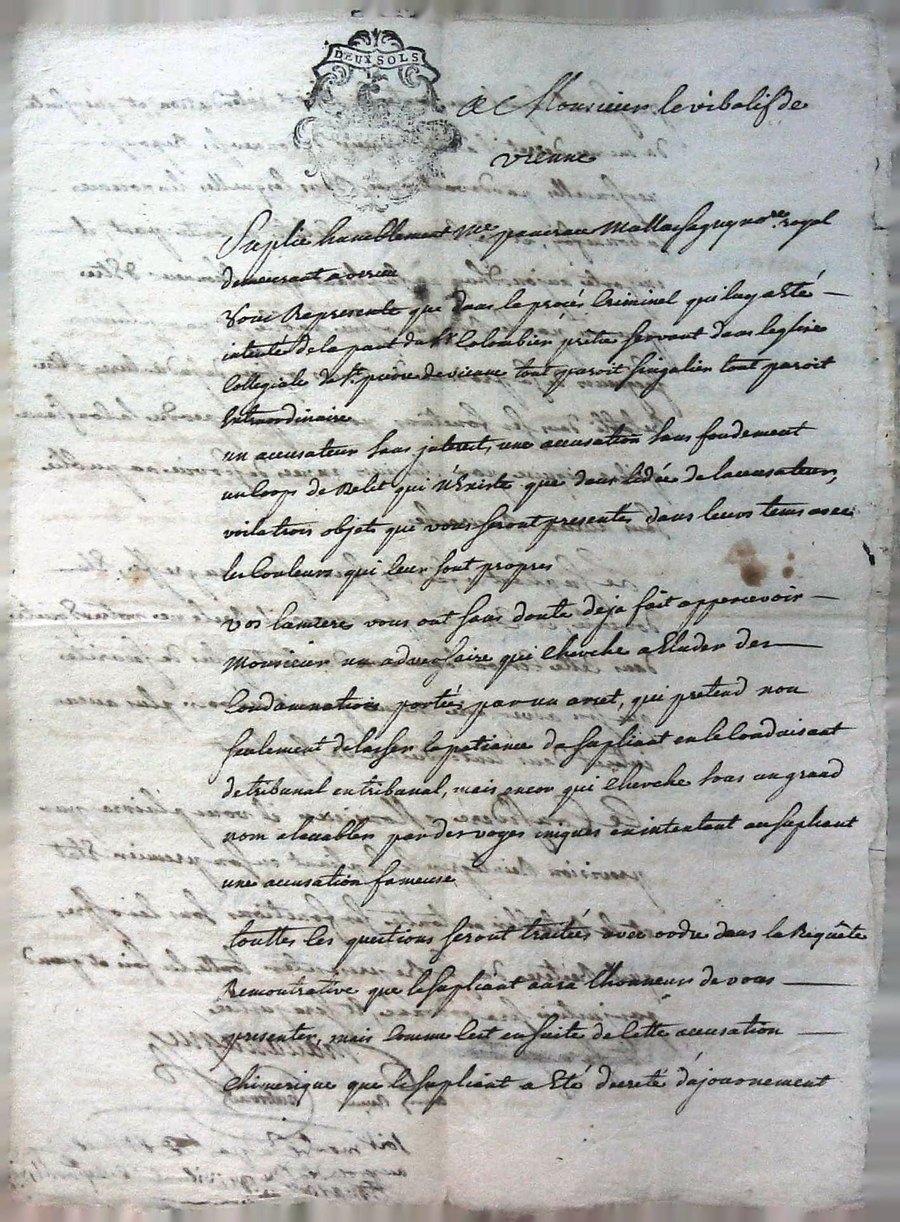 DEUX SOLS
A Monsieur le vibalif de
vienne
Suplie humblement Me Mallassagny nore royal
demeurant a
Vous Represente que dans le procés Criminel qui luy a Eté
intenté de la part du Sr Colombier prêtre servant dans leglise
Collegiale de St pierre de vienne tout paroit singulier tout paroit
Extraordinaire
un accusateur sans jnterest, une accusation sans fondement
un Corps de Delit qui n'Existe que dans lidée de laccusateur,
voila trois objets que vous seront presentes dans leurs tems avec
les Couleurs qui leur sont propres
vos lumiere vous ont sans doute deja fait appercevoir
Monsieur un adversaire qui Cherche a Eluder des
Condamnations portées par un arret, qui pretend non
seulement de lasser la patiance du supliant en le Conduisant
de tribunal en tribunal, mais encor qui Cherche sous un grand
nom a laccabler par des voyes iniques en intentant au supliant
une accusation fameuse
touttes les questions seront traitées avec ordre dans la Requête
Remontrative que le supliant aura lhonneur de vous
presenter, mais Comme Cest en suite de Cette accusation
Chimerique que le supliant a Eté decreté dajournement